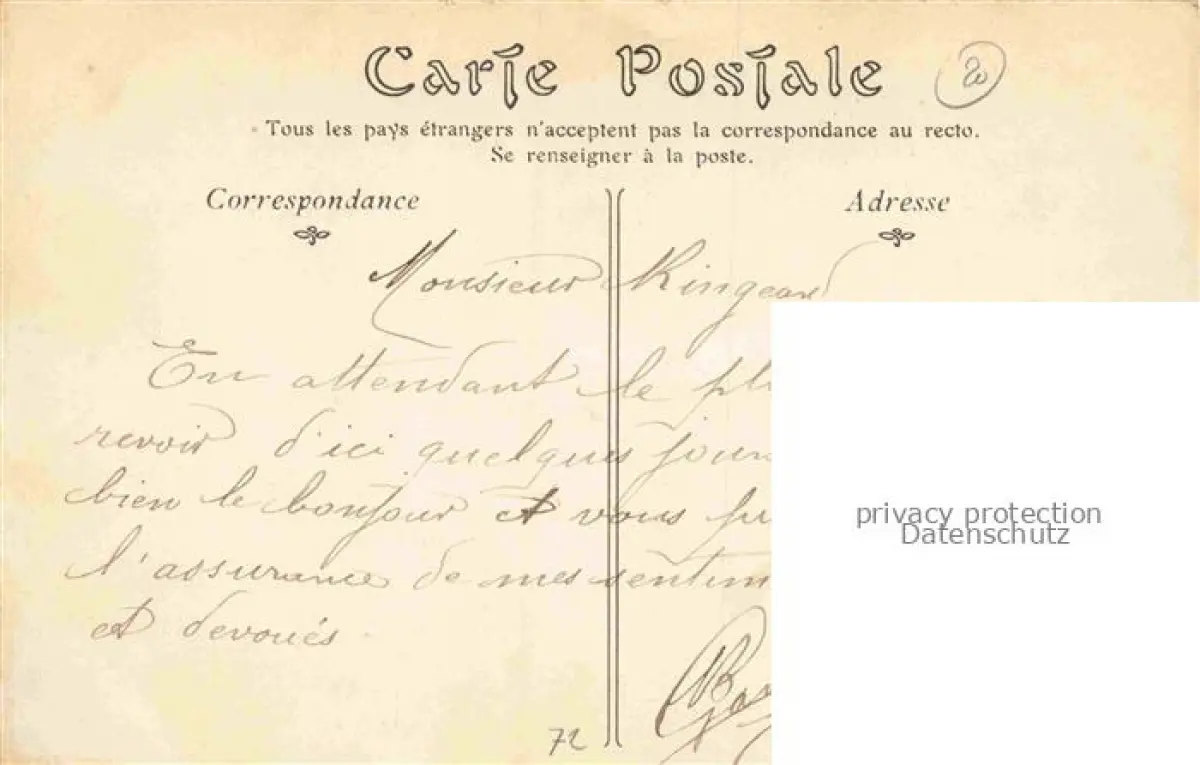 Carte Postale
20
Tous les pays étrangers n'acceptent pas la correspondance au recto.
Se renseigner à la poste.
Correspondance
Adresse
Monsieur Ringeard
En attendant le
revoir d'ici quelques jours
bien le bonjour et vous
l'assurance de mes
et devoués
72
privacy protection
Datenschutz